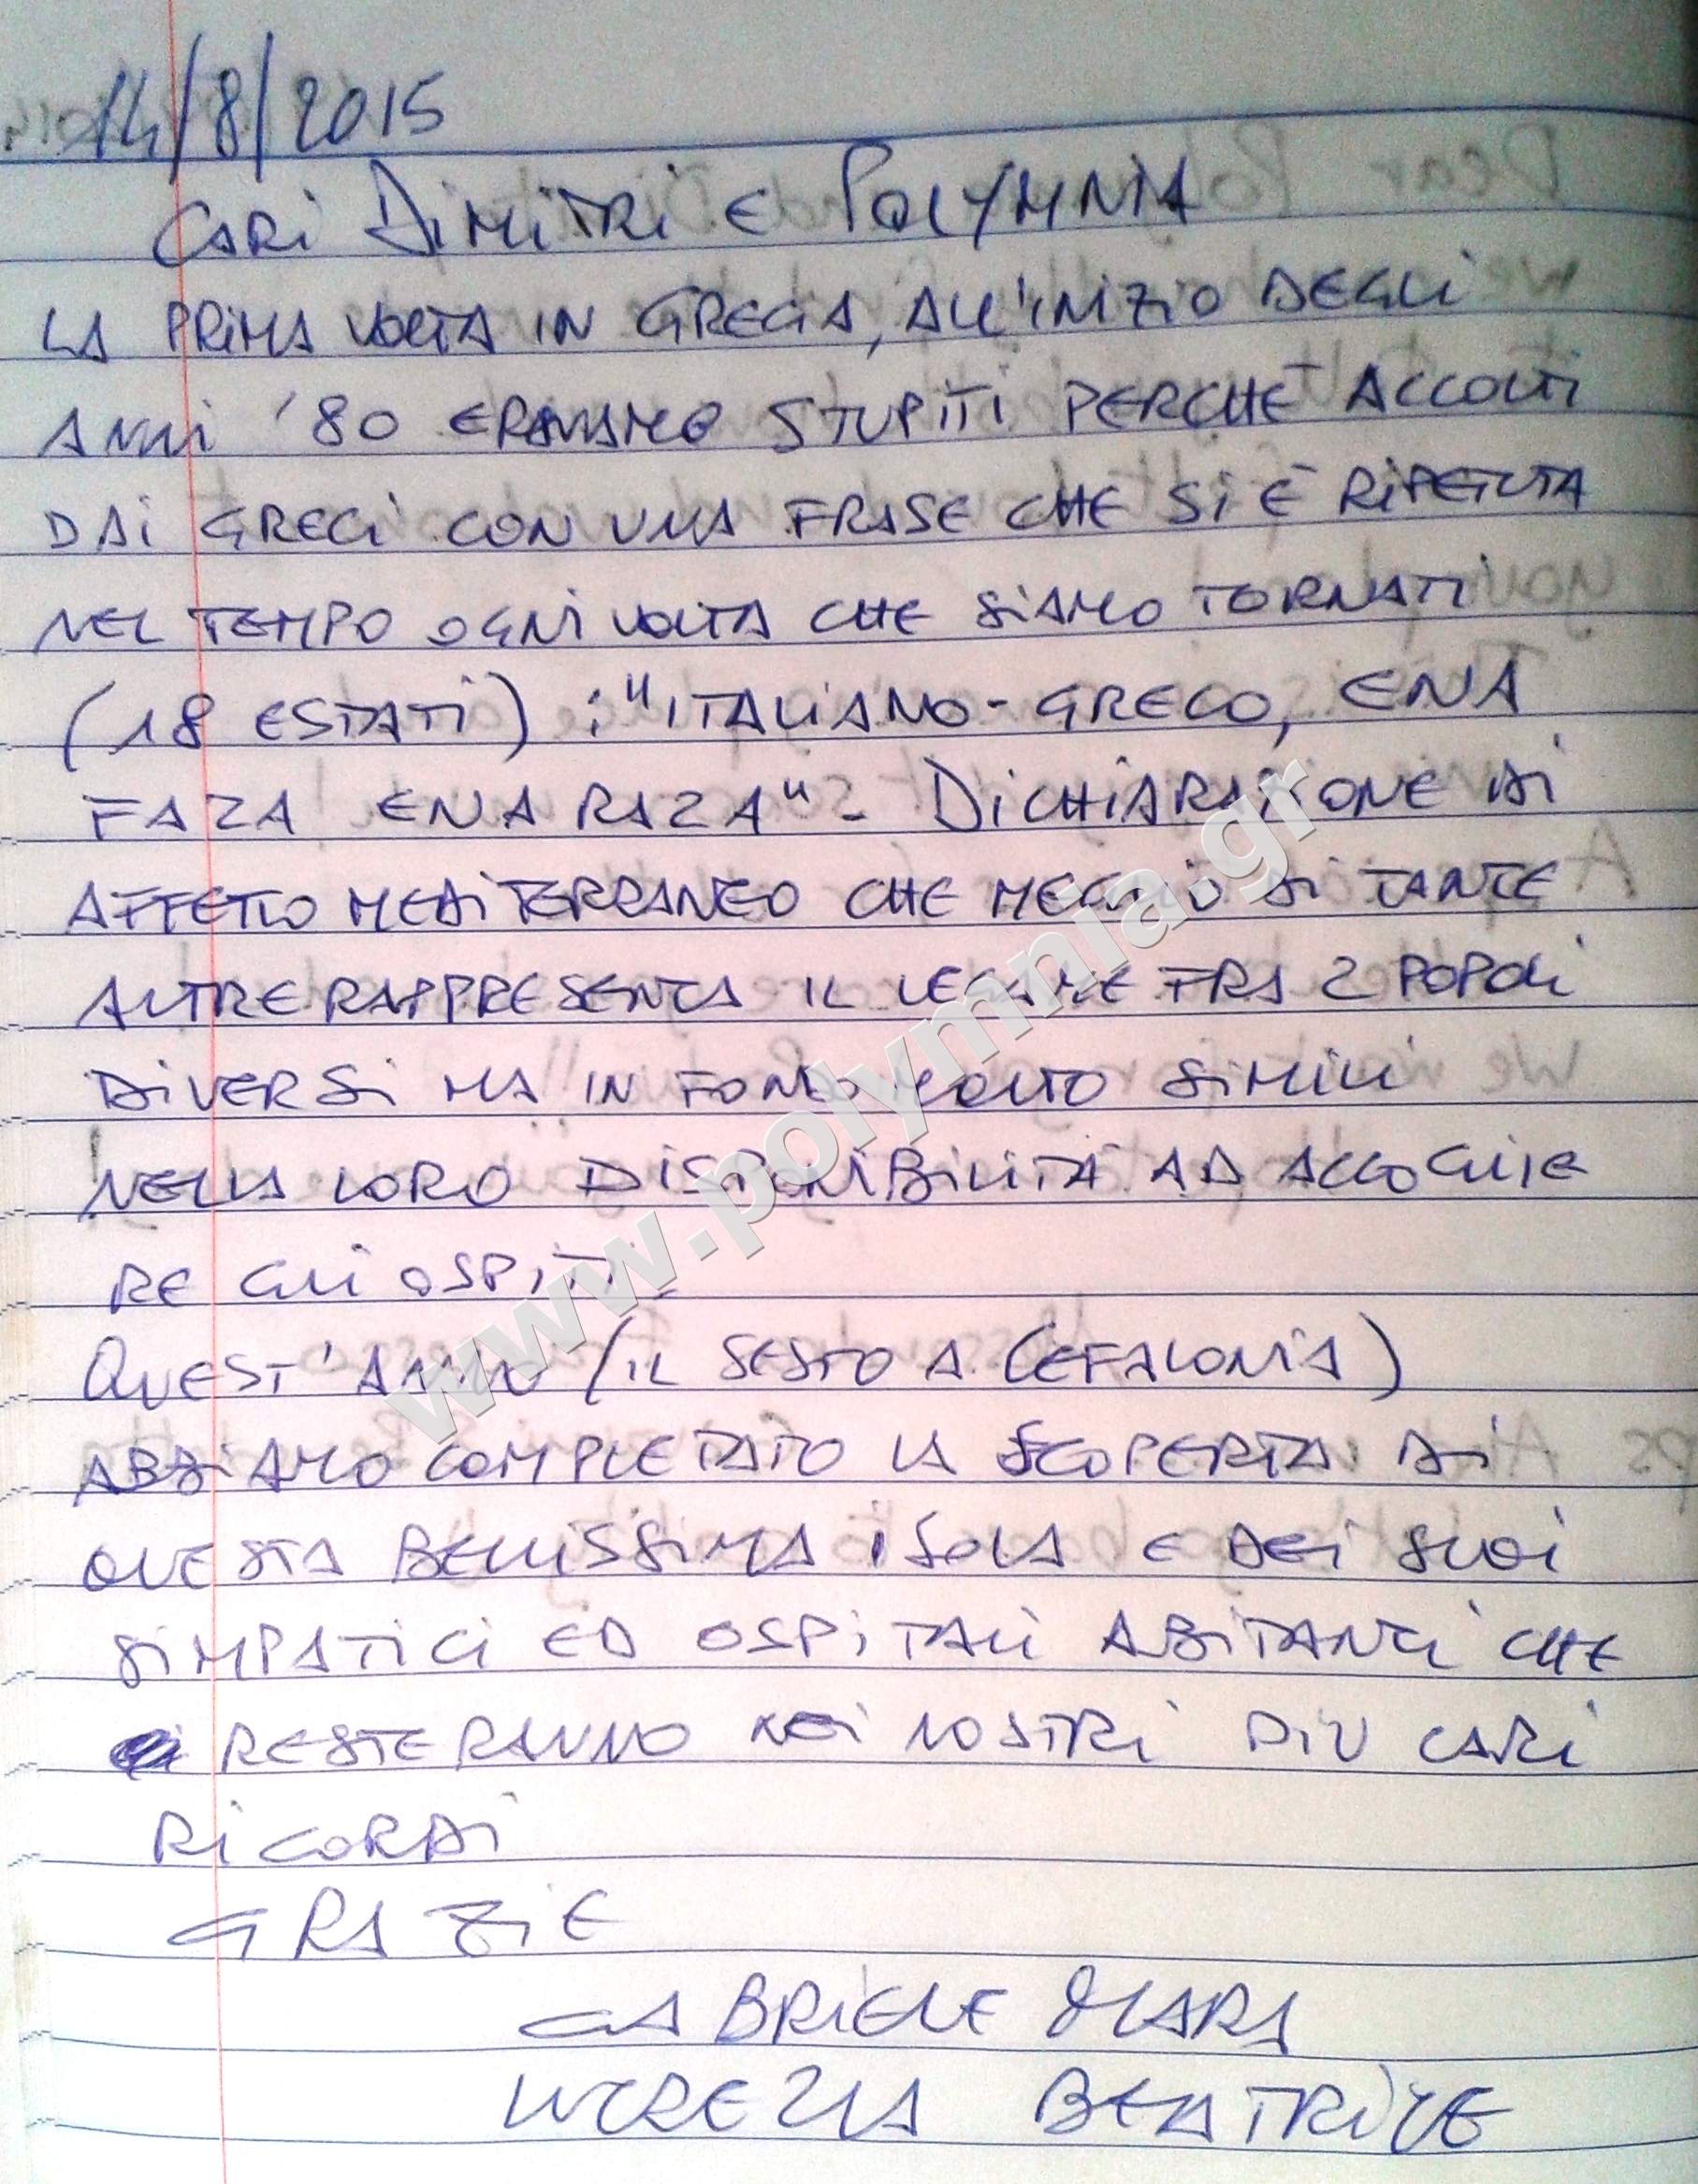 14/8/2015
CARI DIMITRI E POLYMNIA
LA PRIMA VOLTA IN GRECIA, ALL'INIZIO DEGLI
ANNI '80 ERAVAMO STUPITI PERCHÉ ACCOLTI
DAI GRECI CON UNA FRASE CHE SI È RIPETUTA
NEL TEMPO OGNI VOLTA CHE SIAMO TORNATI
(18 ESTATI) : "ITALIANO - GRECO, ENA
FAZA ENA RAZA" - DICHIARAZIONE DI
AFFETTO MEDITERRANEO CHE MEGLIO DI TANTE
ALTRE RAPPRESENTA IL LEGAME FRA 2 POPOLI
DIVERSI MA IN FONDO MOLTO SIMILI
NELLA LORO DISPONIBILITÀ AD ACCOGLIE
RE GLI OSPITI.
QUEST'ANNO (IL SESTO A CEFALONIA)
ABBIAMO COMPLETATO LA SCOPERTA DI
QUESTA BELLISSIMA ISOLA E DEI SUOI
SIMPATICI ED OSPITALI ABITANTI CHE
RESTERANNO NEI NOSTRI PIÙ CARI
RICORDI
GRAZIE
GABRIELE MARA
LUCREZIA BEATRICE
www.polymnia.gr